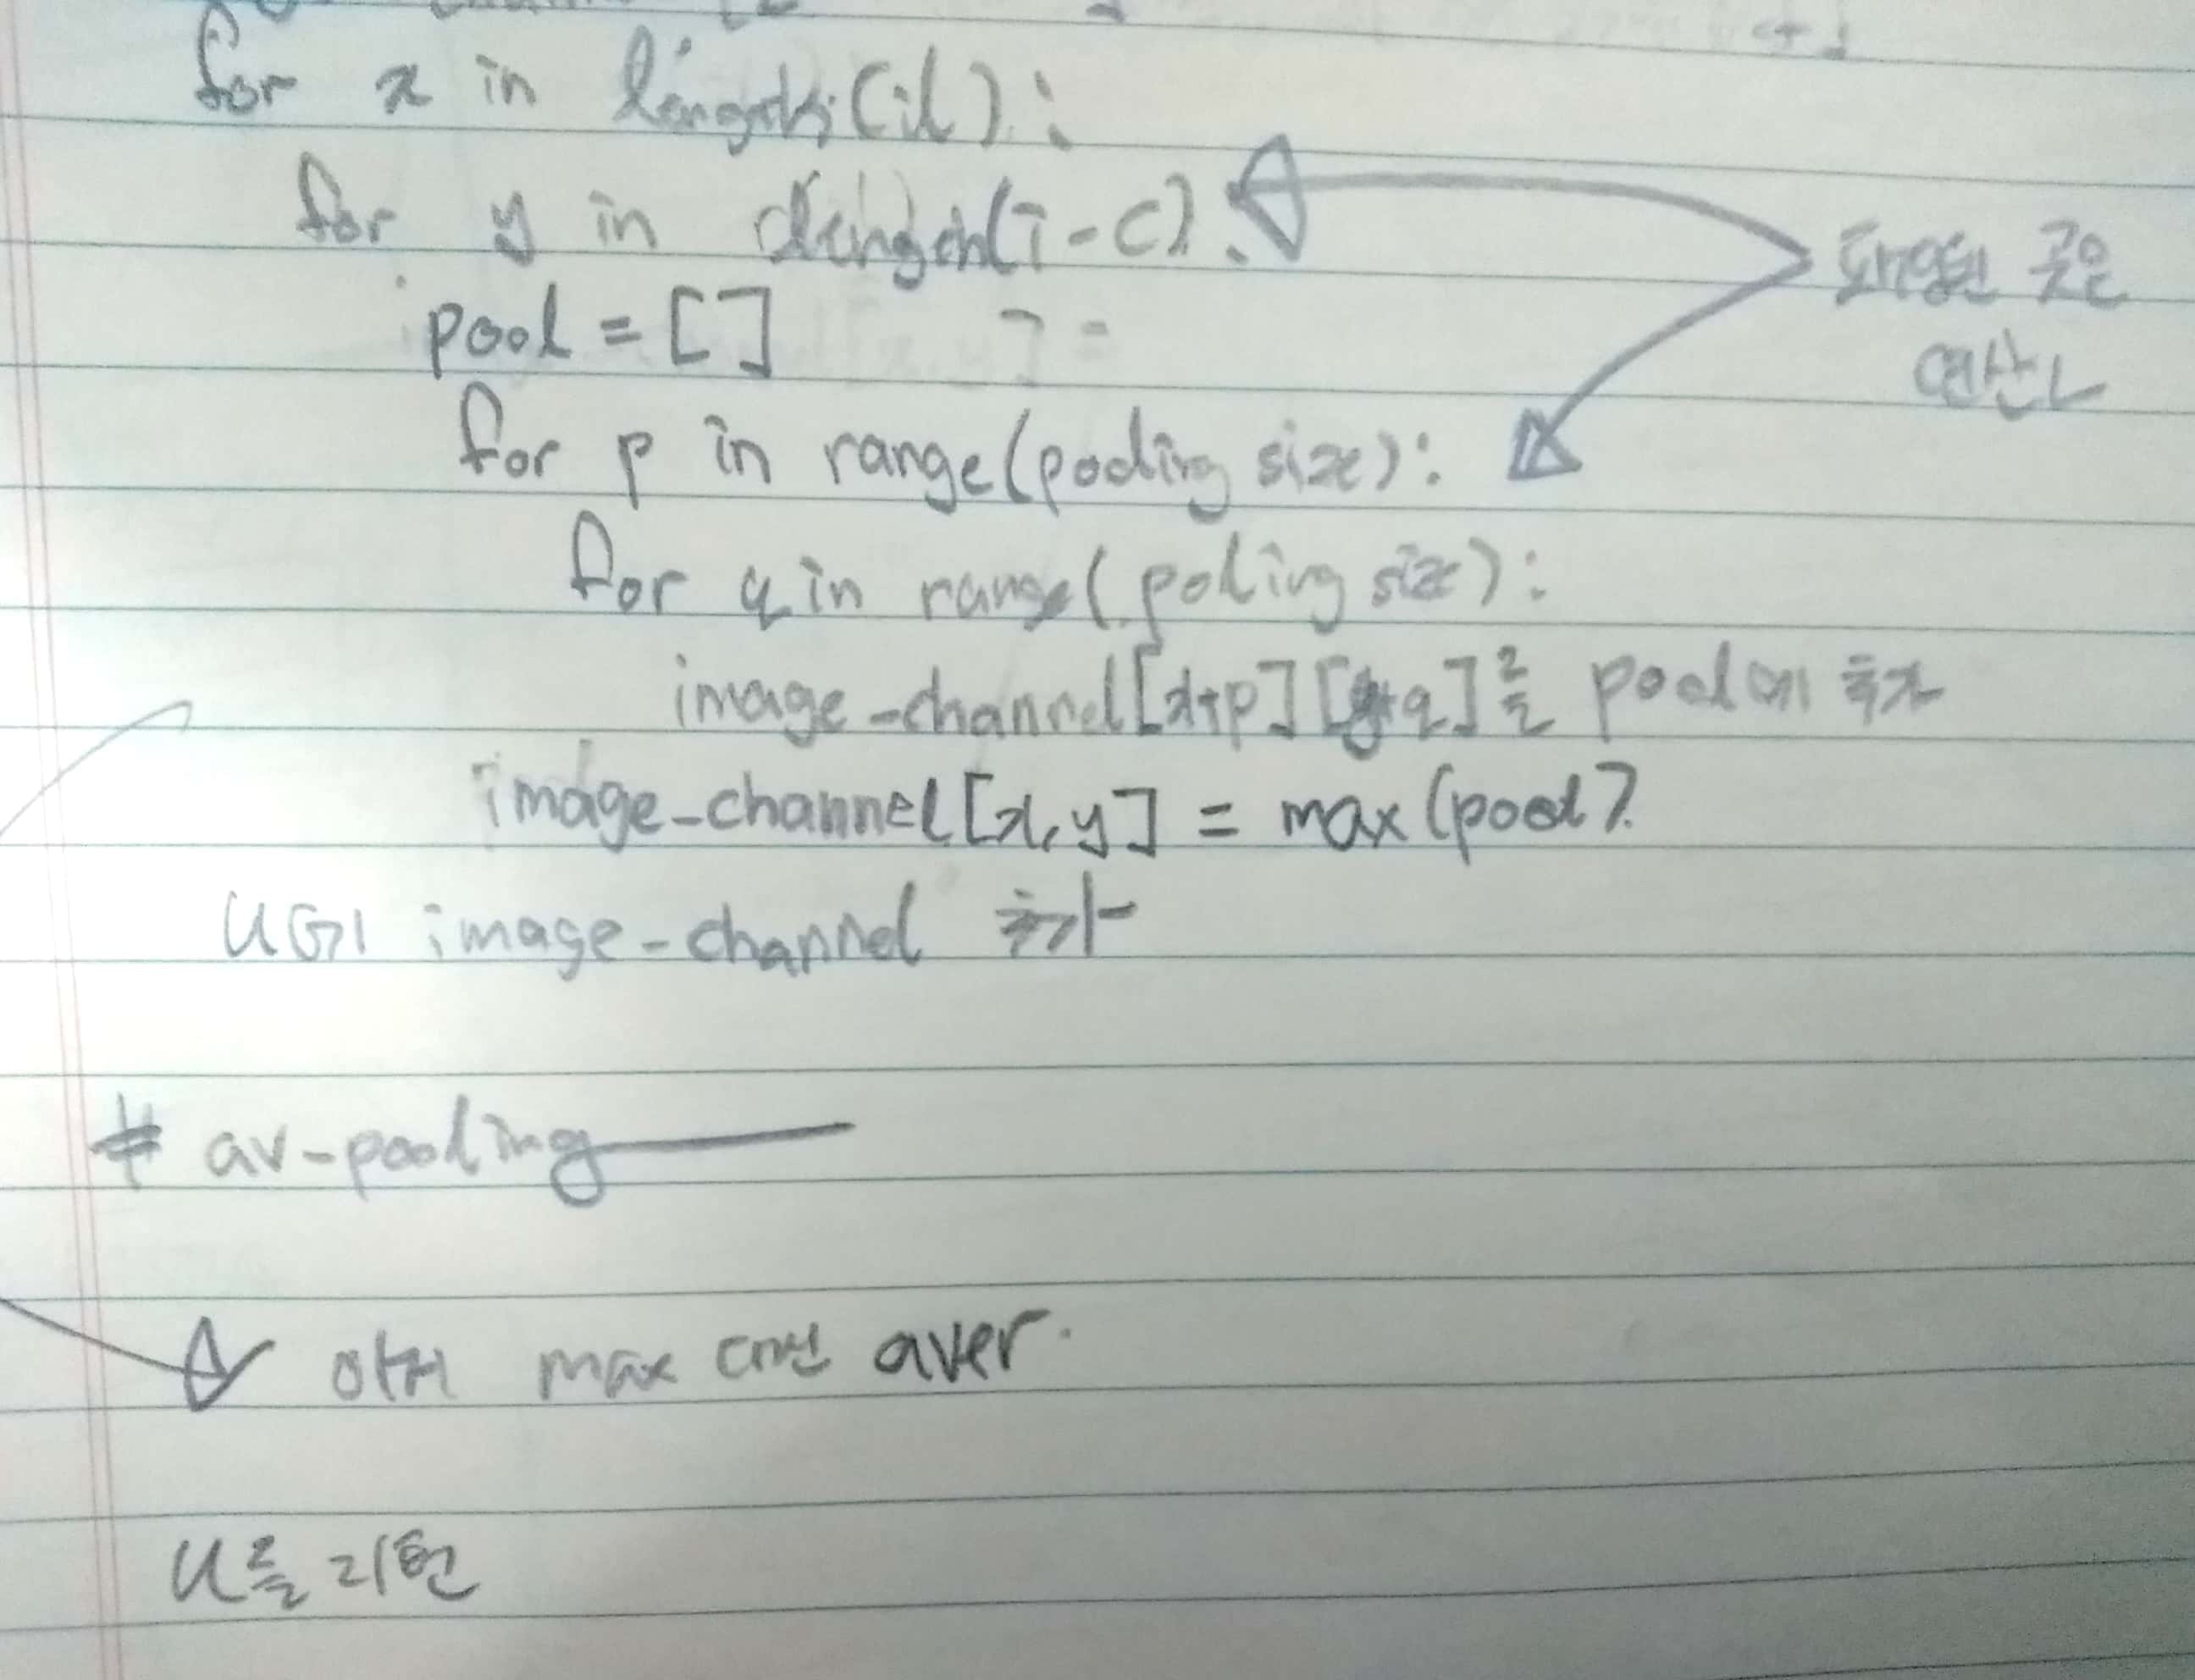 for x in length(il):
for y in length(i-c):
pool = []
곳은
연산
for p in range(pooling size):
for q in range(poling size):
image-channel[x+p][y+q]를 pool에 추가
image-channel[x,y] = max(pool).
U에 image-channel 추가
# av-pooling
max 대신 aver.
U를 리턴